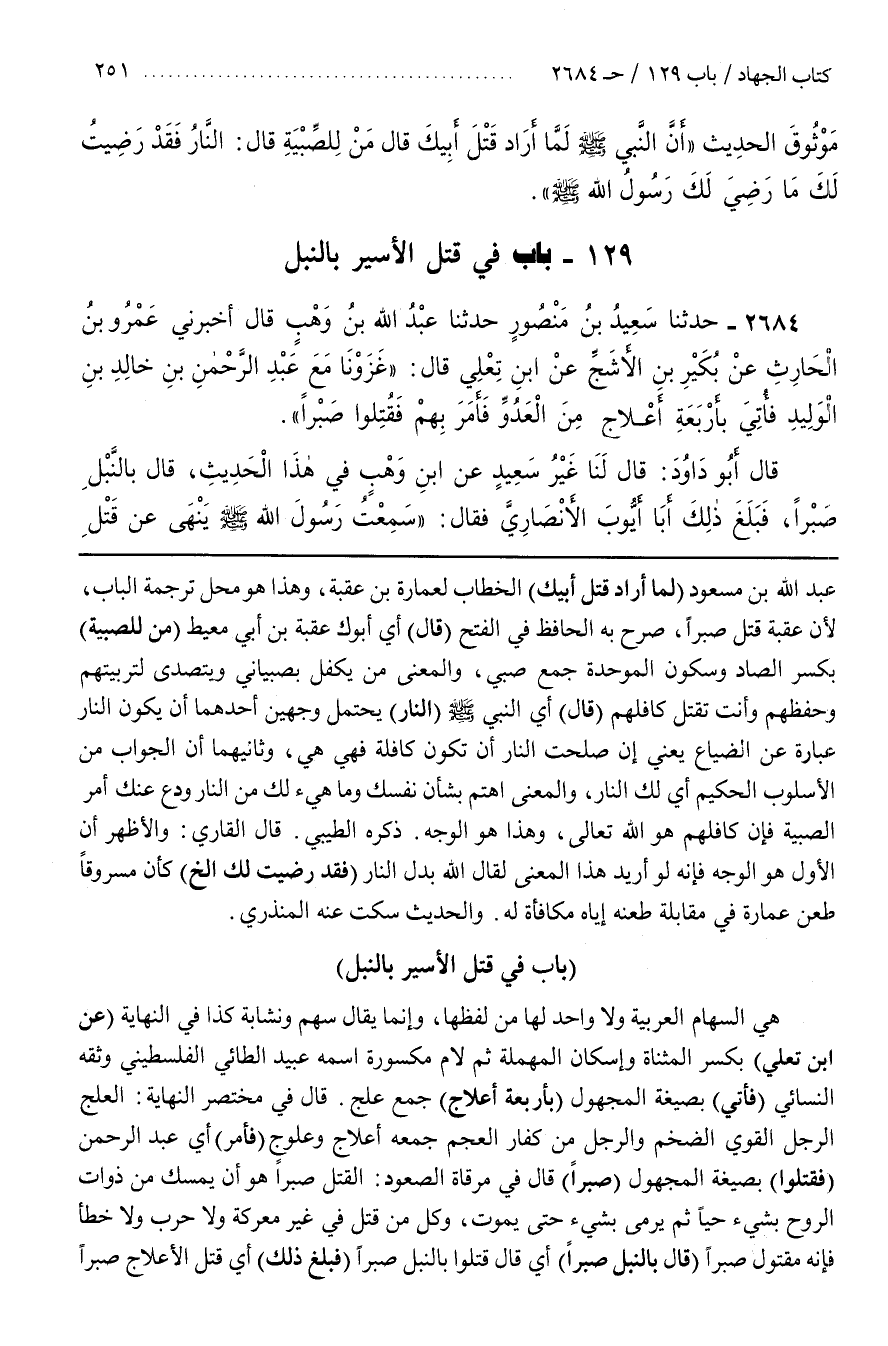 كتاب الجهاد / باب ١٢٩ / حـ ٢٦٨٤ ........................................ ٢٥١
مَوْثُوقَ الحدِيث «أَنَّ النَّبي ﷺ لَمَّا أَرَاد قَتْلَ أَبِيكَ قال مَنْ لِلصِّبْيَةِ قال: النَّارُ فَقَدْ رَضِيتُ
لَكَ مَا رَضِيَ لَكَ رَسُولُ الله ﷺ».
١٢٩ - باب في قتل الأسير بالنبل
٢٦٨٤ - حدثنا سَعِيدُ بنُ مَنْصُورٍ حدثنا عبْدُ الله بنُ وَهْبٍ قال أخبرني عَمْرُو بنُ
الْحَارِثِ عنْ بُكَيْرِ بنِ الأشَجِّ عنْ ابنِ تِعْلِي قال: «غَزَوْنَا مَعَ عَبْدِ الرَّحْمٰنِ بنِ خالِدِ بنِ
الْوَلِيدِ فأُتِيَ بأَرْبَعَةِ أَعْـلاجٍ مِنَ الْعَدُوِّ فَأَمَرَ بِهِمْ فَقُتِلوا صَبْراً».
قال أَبُو دَاوُدَ: قال لَنَا غَيْرُ سَعِيدٍ عن ابنِ وَهْبٍ في هٰذَا الْحَدِيثِ، قال بالنَّبْلِ
صَبْراً، فَبَلَغَ ذٰلِكَ أَبَا أَيُّوبَ الأنْصَارِيَّ فقال: «سَمِعْتُ رَسُولَ الله ﷺ يَنْهَى عن قَتْلِ
عبد الله بن مسعود (لما أراد قتل أبيك) الخطاب لعمارة بن عقبة، وهذا هو محل ترجمة الباب،
لأن عقبة قتل صبراً، صرح به الحافظ في الفتح (قال) أي أبوك عقبة بن أبي معيط (من للصبية)
بكسر الصاد وسكون الموحدة جمع صبي، والمعنى من يكفل بصبياني ويتصدى لتربيتهم
وحفظهم وأنت تقتل كافلهم (قال) أي النبي ﷺ (النار) يحتمل وجهين أحدهما أن يكون النار
عبارة عن الضياع يعني إن صلحت النار أن تكون كافلة فهي هي، وثانيهما أن الجواب من
الأسلوب الحكيم أي لك النار، والمعنى اهتم بشأن نفسك وما هيء لك من النار ودع عنك أمر
الصبية فإن كافلهم هو الله تعالى، وهذا هو الوجه. ذكره الطيبي. قال القاري: والأظهر أن
الأول هو الوجه فإنه لو أريد هذا المعنى لقال الله بدل النار (فقد رضيت لك الخ) كأن مسروقاً
طعن عمارة في مقابلة طعنه إياه مكافأة له. والحديث سكت عنه المنذري.
(باب في قتل الأسير بالنبل)
هي السهام العربية ولا واحد لها من لفظها، وإنما يقال سهم ونشابة كذا في النهاية (عن
ابن تعلي) بكسر المثناة وإسكان المهملة ثم لام مكسورة اسمه عبيد الطائي الفلسطيني وثقه
النسائي (فأتي) بصيغة المجهول (بأربعة أعلاج) جمع علج. قال في مختصر النهاية: العلج
الرجل القوي الضخم والرجل من كفار العجم جمعه أعلاج وعلوج (فأمر) أي عبد الرحمن
(فقتلوا) بصيغة المجهول (صبراً) قال في مرقاة الصعود: القتل صبراً هو أن يمسك من ذوات
الروح بشيء حياً ثم يرمى بشيء حتى يموت، وكل من قتل في غير معركة ولا حرب ولا خطأ
فإنه مقتول صبراً (قال بالنبل صبراً) أي قال قتلوا بالنبل صبراً (فبلغ ذلك) أي قتل الأعلاج صبراً